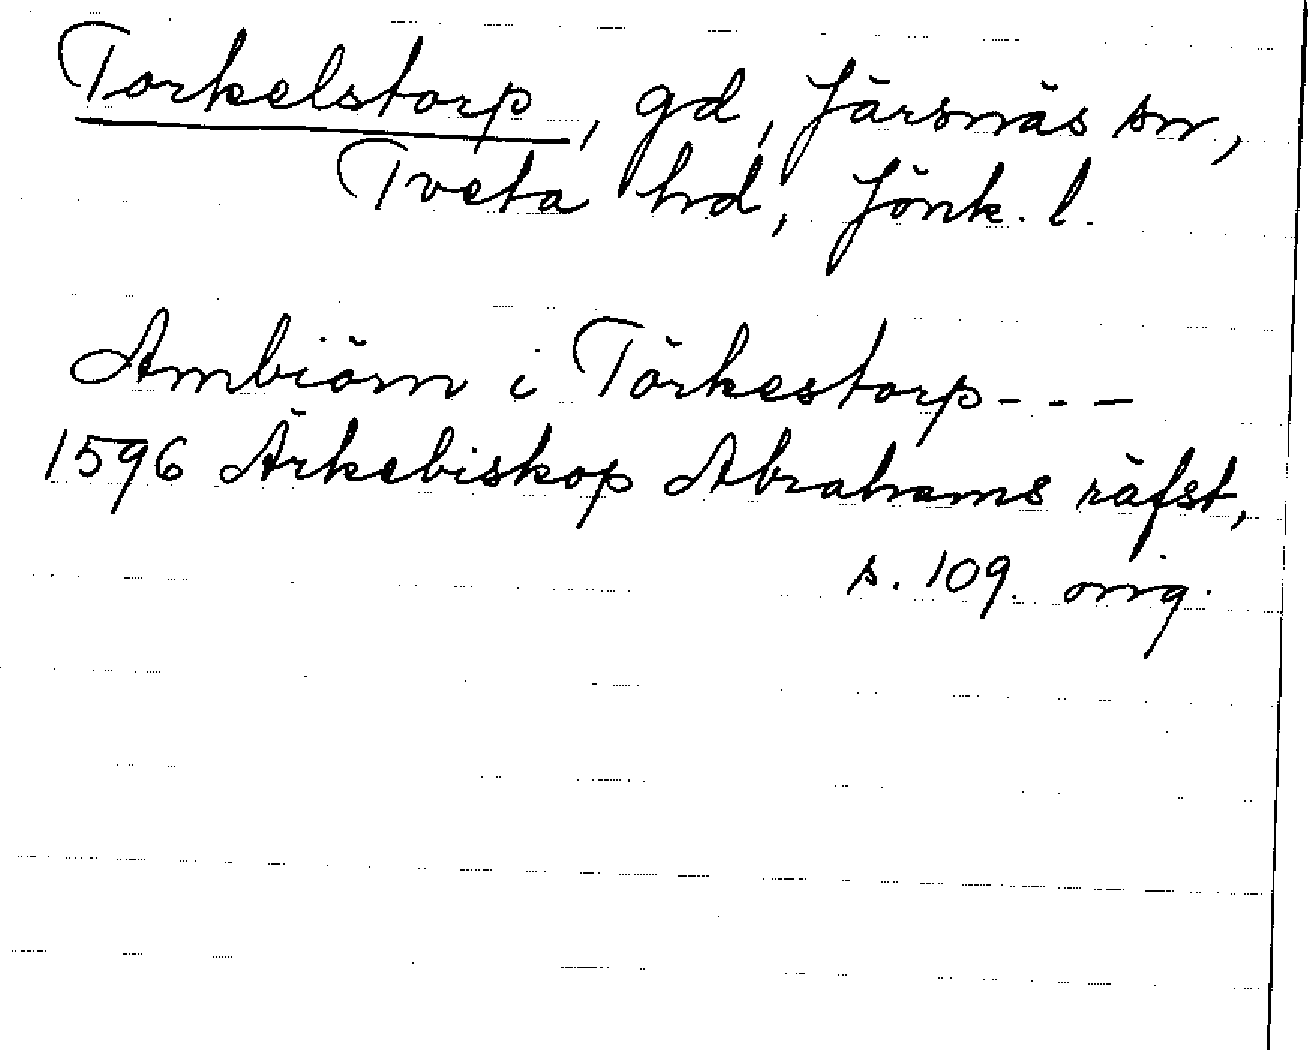 Torkelstorp, gd, Järsnäs sn,
Tveta hd, Jönk. l.
Ambiörn i Törkestorp - - -
1596 Ärkebiskop Abrahams räfst,
s. 109. orig.